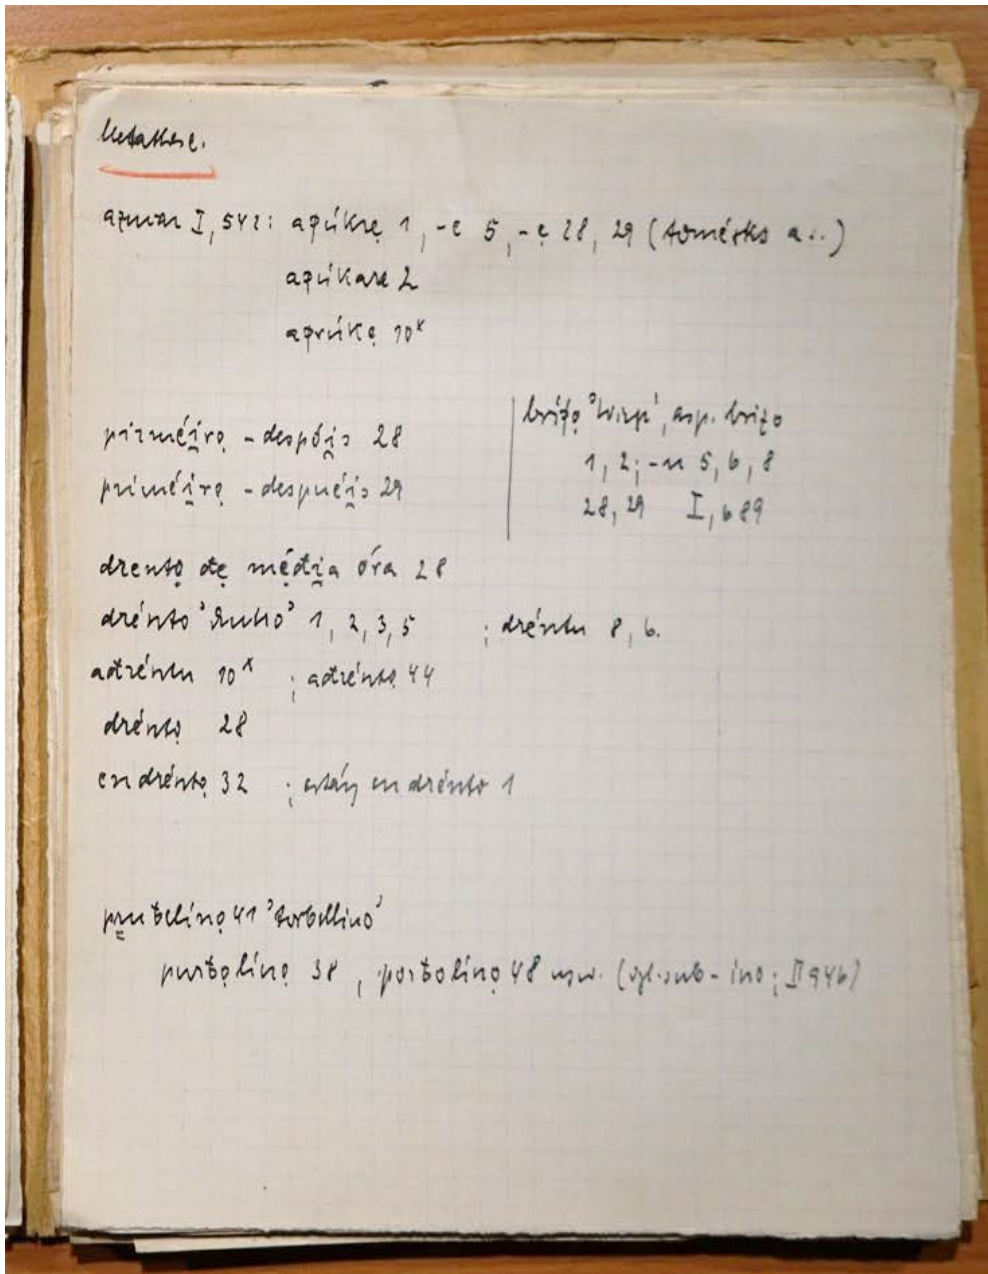 Metathese.
azucar I, 542: aꞩúkrę 1, -e 5, -ę 28, 29 (tomésko a..)
aꞩúkare 2
aꞩrúkę 10ˣ
pirméi̯rǫ - despói̯s 28
priméi̯rǫ - despuéi̯s 29
bríꞩǫ ʾ ʾ, asp. brizo
1, 2; -u 5, 6, 8
28, 29 I, 689
drentǫ đę męđi̯a óra 28
drénto 1, 2, 3, 5 ; dréntu 8, 6.
ađréntu 10ˣ ; ađréntǫ 44
dréntǫ 28
en dréntǫ 32 ; están en drénto 1
pruƀelínǫ 41 ʾtorbellinoʾ
purƀǫlínǫ 38, porƀolínǫ 48 usw. (vgl. sub -ino; II 946)